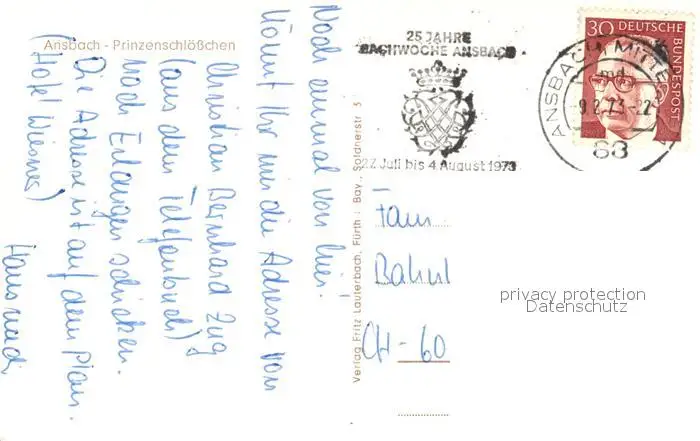 Ansbach - Prinzenschlößchen
Noch einmal von hier.
Könnt Ihr mir die Adresse von
Christian Bernhard Zug
(aus dem Telefonbuch)
nach Erlangen schicken.
Die Adresse ist auf dem Plan.
(Hotel Wiesner)
Verlag Fritz Lauterbach, Fürth / Bay., Soldnerstr 5
25 JAHRE
BACHWOCHE ANSBACH
27. Juli bis 4 August 1973
30 DEUTSCHE
BUNDESPOST
ANSBACH MITTE
-9.2.73-22
88
Fam
CH-60
privacy protection
Datenschutz